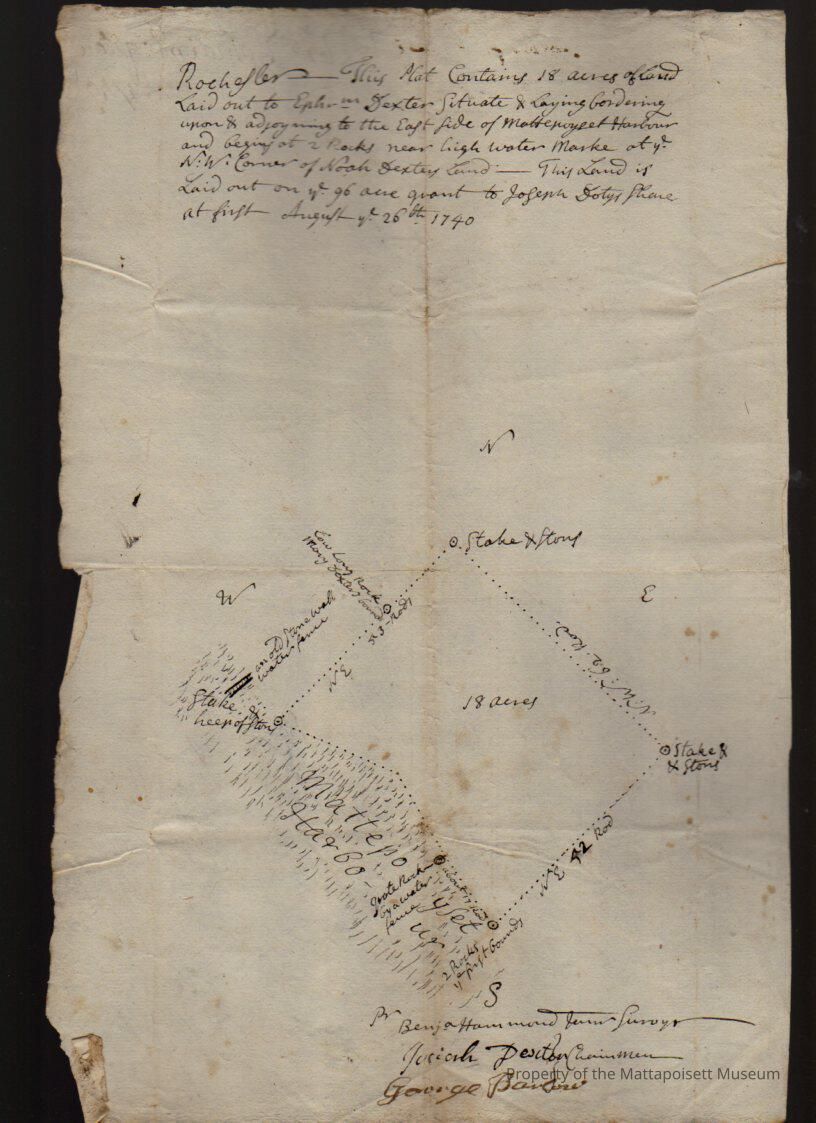 Rochester — This Plat Contains 18 acres of Land
Laid out to Ephrm Dexter Situate & Laying bordering
upon & adjoyning to the East Side of Mattepoyset Harbour
and begins at 2 Rocks near high water Marke at ye
N: W: Corner of Noah Dexters Land — This Land is
Laid out on ye 96 acre grant to Joseph Dotys Share
at first August ye 26th 1740
N
Stake & Stons
Low Long Rock
Mary Dexters bound
W
E
55 Rods
an old Stone wall
water fence
N E
N: W: 62 Rod
18 acres
Stake &
heep of Stons
Stake &
& Stons
Mattepo
Harbo
yset
ur
52 Rod
N E
Rock
by a water
fence
2 Rocks
ye first bounds
S
Pr
Benja Hammond Junr Survayr
Josiah Dexter Chainmen
George Barlow
Property of the Mattapoisett Museum